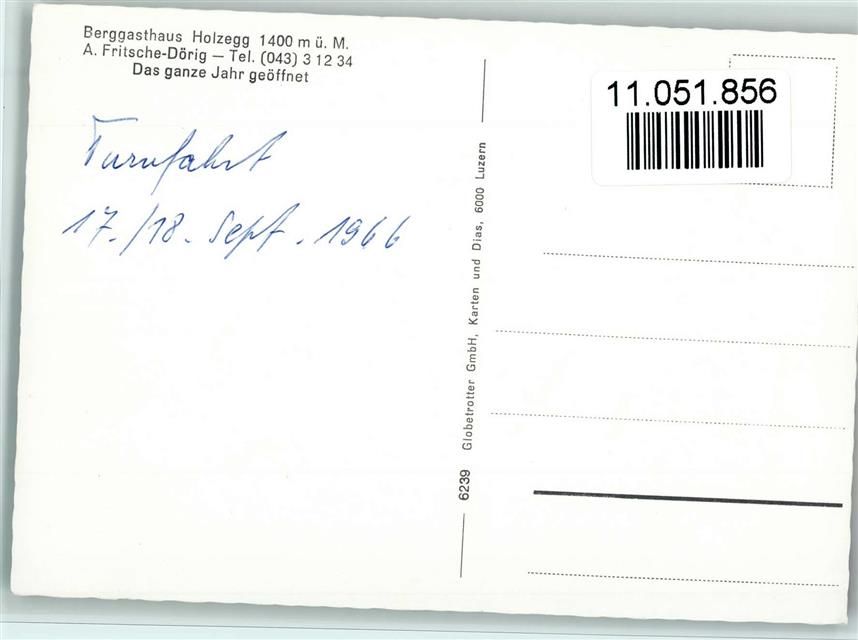 Berggasthaus Holzegg 1400 m ü. M.
A. Fritsche-Dörig — Tel. (043) 3 12 34
Das ganze Jahr geöffnet
Turnfahrt
17./18. Sept. 1966
6239 Globetrotter GmbH, Karten und Dias, 6000 Luzern
11.051.856